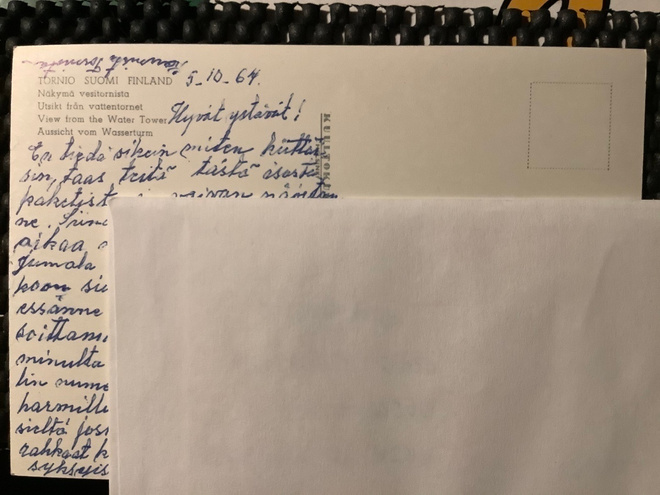 TORNIO SUOMI FINLAND
Näkymä vesitornista
Utsikt från vattentornet
View from the Water Tower
Aussicht vom Wasserturm
5-10-64.
Hyvät ystävät!
En tiedä oikein miten kiittäi
sin, taas teitä tästä isosta
paketist
ne.
aikaa
Jumala
koon
essänne
soittam
minulta
lin nume
harmill
sieltä jos
rahkaat k
syksyis